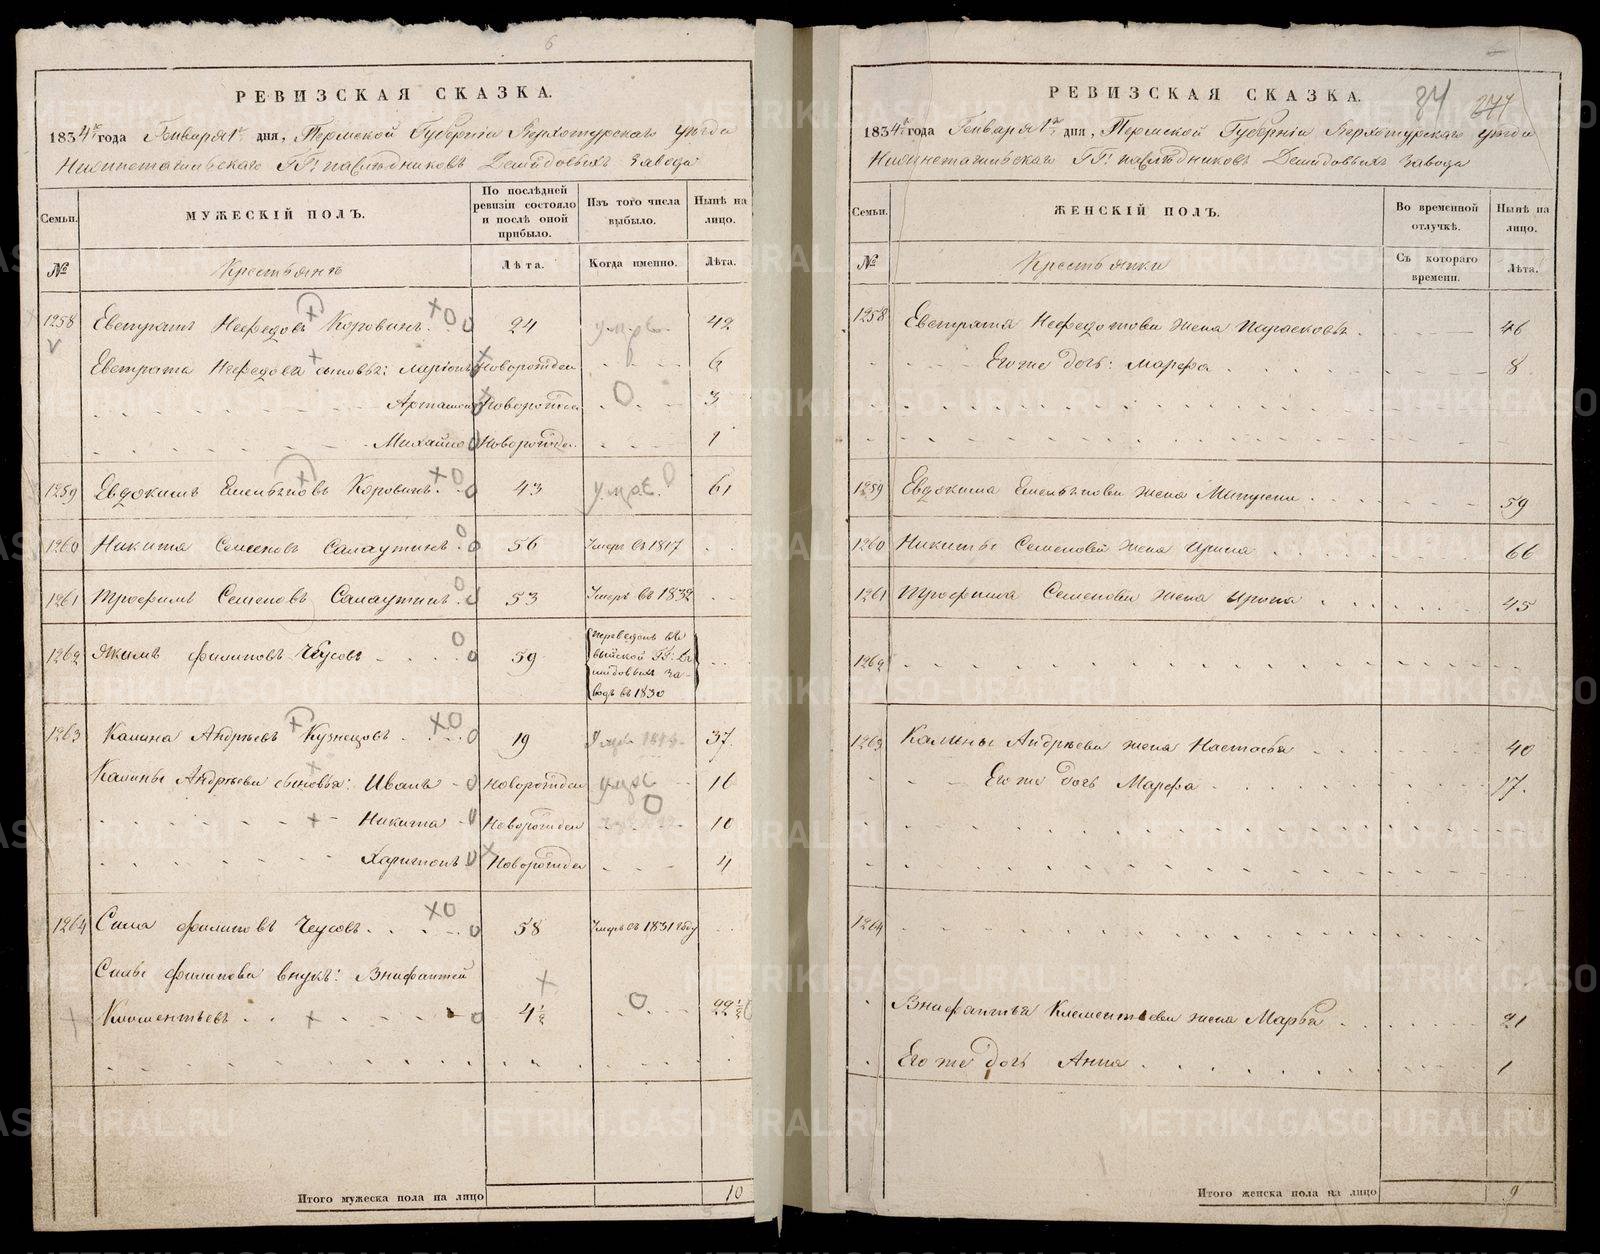 6
РЕВИЗСКАЯ СКАЗКА.
1834го года Генваря 1го дня, Пермской Губерніи Верхотурскаго уезда
Нижнетагильскаго ГГ: наследниковъ Демидовыхъ завода
Семьи.
МУЖЕСКІЙ ПОЛЪ.
По последней ревизіи состояло и после оной прибыло.
Изъ того числа выбыло.
Ныне на лицо.
№
Крестьянъ
Лета.
Когда именно.
Лета.
1258 Евстратъ Нефедовъ Коровинъ. 24 умре 42
Евстрата Нефедова сыновья: Ларіонъ Новорожден 6
Арташонъ Новорожден 3
Михайло Новорожде. 1
1259 Евдокимъ Емельяновъ Коровинъ. 43 умре. 61
1260 Никита Семеновъ Салаутинъ. 56 Умеръ въ 1817
1261 Трофимъ Семеновъ Салаутинъ. 53 Умеръ въ 1832
1262 Якимъ Филиповъ Чеусовъ 59 переведенъ въ выйской ГГ: Демидовыхъ заводъ въ 1830
1263 Калина Андреевъ Кузнецовъ 19 37.
Калины Андреева сыновья: Иванъ Новорожден умре 16
Никита Новорожден 10
Харитонъ Новорожден 4
1264 Сила Филиповъ Чеусовъ. 58 Умеръ въ 1831 году
Силы Филипова внукъ: Внифантей
Клементьевъ 4½ 22½
Итого мужеска пола на лицо 10
34 277
РЕВИЗСКАЯ СКАЗКА.
1834го года Генваря 1го дня, Пермской Губерніи Верхотурскаго уезда
Нижнетагильскаго ГГ: наследниковъ Демидовыхъ завода
Семьи.
ЖЕНСКІЙ ПОЛЪ.
Во временной отлучке.
Ныне на лицо.
№
Крестьянки
Съ котораго времени.
Лета.
1258 Евстратия Нефедотова жена Парасковья. 46
Его же дочь: Марфа 8
1259 Евдокима Емельянова жена Матрена 59
1260 Никиты Семенова жена Ирина 66
1261 Трофима Семенова жена Ирина 45
1262
1263 Калины Андреева жена Настасья 40
Его же дочь Марфа 17.
1264
Внифантья Клементьева жена Марья 21
Его же дочь Анна 1
Итого женска пола на лицо 9
METRIKI.GASO-URAL.RU